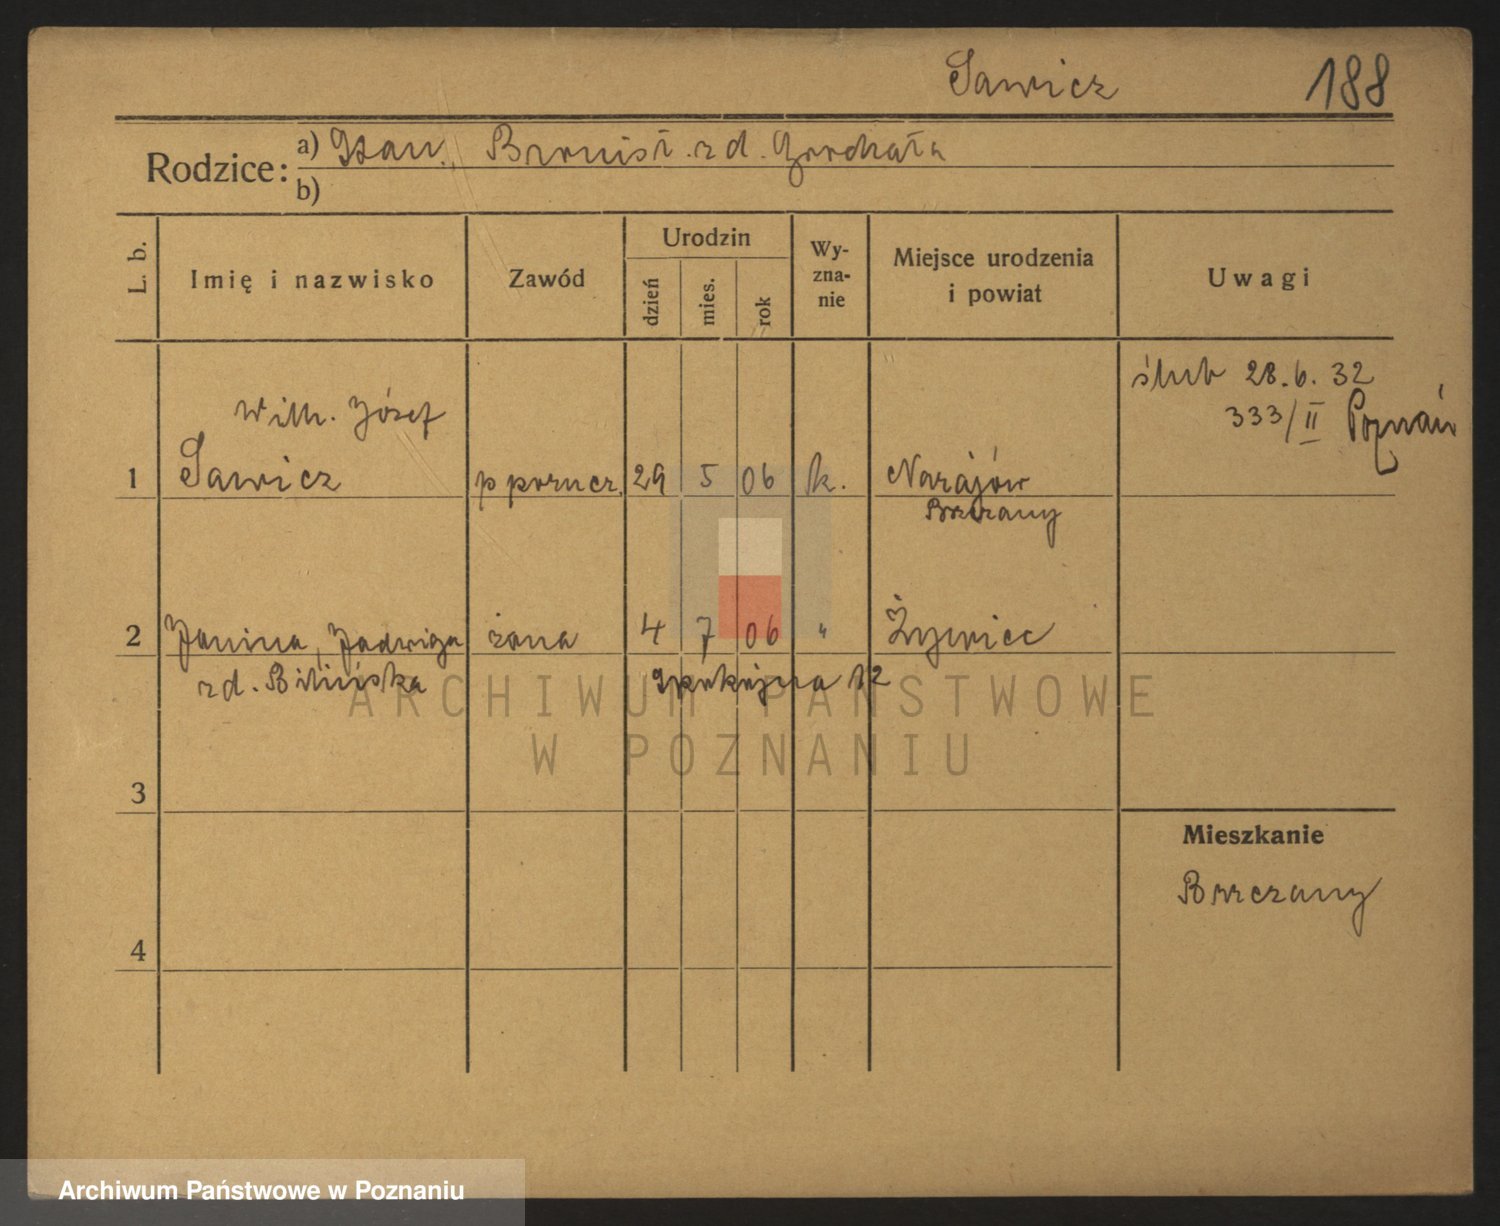 Sawicz 188
Rodzice: a) Stan., Bronisł. z d. Grochała
b)
L. b. Imię i nazwisko Zawód Urodzin dzień mies. rok Wy-zna-nie Miejsce urodzenia i powiat Uwagi
ślub 28.6.32
333/II Poznań
Wilh. Józef
1 Sawicz pporucz. 29 5 06 k. Narajów
Brzeżany
2 Janina, Jadwiga żona 4 7 06 " Żywiec
zd. Bilińska Spokojna 12
ARCHIWUM PAŃSTWOWE
W POZNANIU
3
Mieszkanie
Brzeżany
4
Archiwum Państwowe w Poznaniu